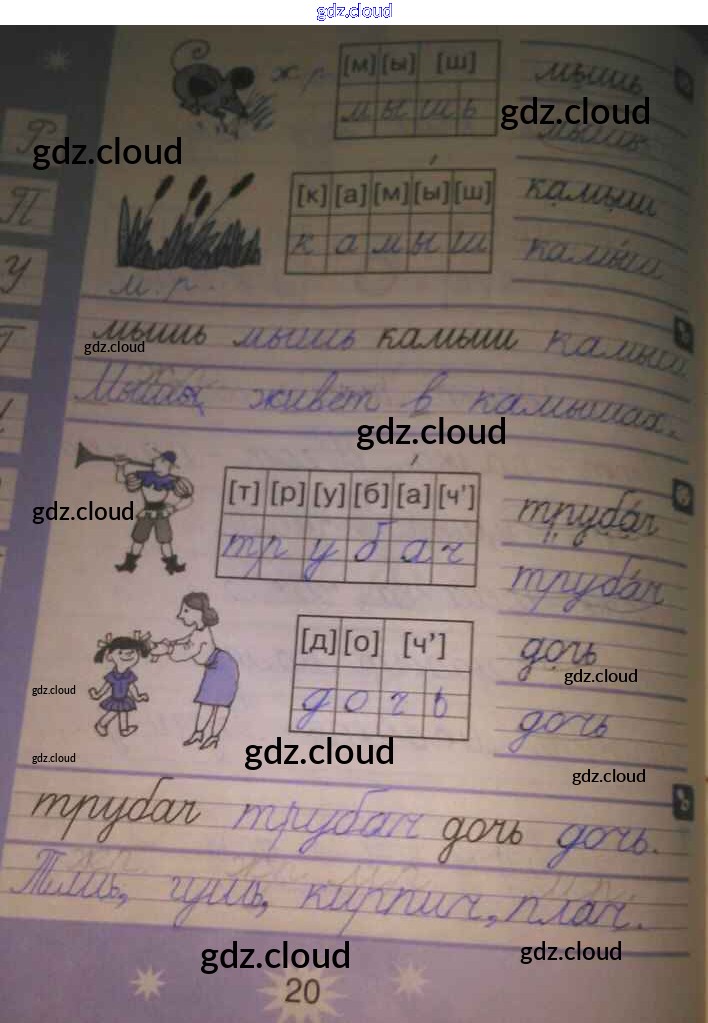 gdz.cloud
ж.р.
[м] [ы] [ш]
м ы ш ь
мышь
gdz.cloud
мышь
gdz.cloud
[к] [а] [м] [ы] [ш]
к а м ы ш
камыш
камыш
м.р.
мышь мышь камыш камыш
gdz.cloud
живёт в камышах.
gdz.cloud
[т] [р] [у] [б] [а] [ч']
т р у б а ч
трубач
gdz.cloud
трубач
[д] [о] [ч']
д о ч ь
дочь
gdz.cloud
gdz.cloud
дочь
gdz.cloud
gdz.cloud
gdz.cloud
трубач трубач дочь дочь.
кирпич, плач.
gdz.cloud
gdz.cloud
20